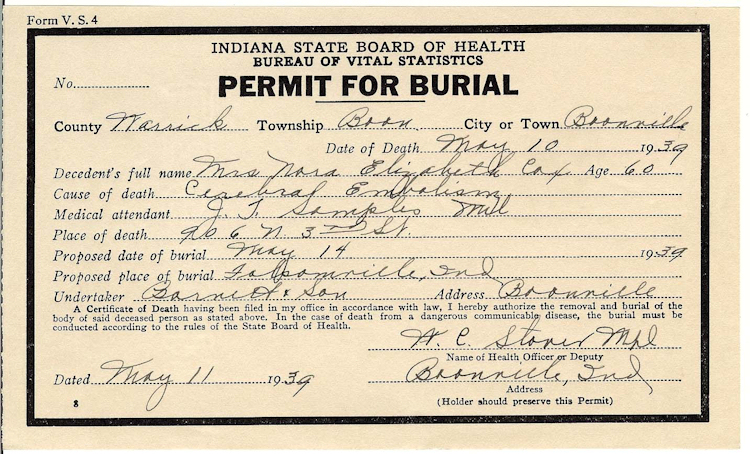 Form V. S. 4
INDIANA STATE BOARD OF HEALTH
BUREAU OF VITAL STATISTICS
No. PERMIT FOR BURIAL
County Warrick Township Boon City or Town Boonville
Date of Death May 10 1939
Decedent's full name Mrs Nora Elizabeth Cox Age 60
Cause of death Cerebral Embolism
Medical attendant J. T. Samples
Place of death 906 N. 3rd St.
Proposed date of burial May 14 1939
Proposed place of burial Folsomville, Ind
Undertaker Barnett & Son Address Boonville
A Certificate of Death having been filed in my office in accordance with law, I hereby authorize the removal and burial of the
body of said deceased person as stated above. In the case of death from a dangerous communicable disease, the burial must be
conducted according to the rules of the State Board of Health.
W. C. Stover
Name of Health Officer or Deputy
Dated May 11 1939 Boonville, Ind
Address
8 (Holder should preserve this Permit)